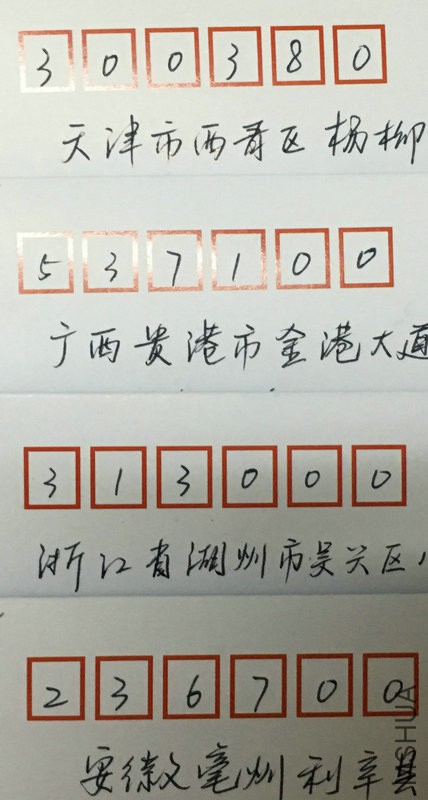 300380
天津市西青区杨柳
537100
广西贵港市金港大道
313000
浙江省湖州市吴兴区
236700
安徽亳州利辛县
SHUA